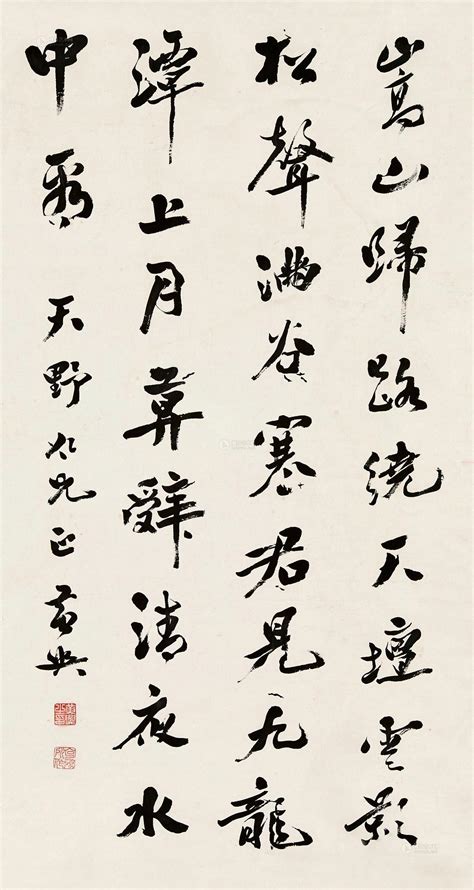 嵩山歸路繞天壇雲影
松聲滿谷寒君見九龍
潭上月莫辭清夜水
中看 天野仁兄正 黃興